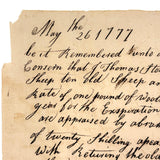 May the
26 1777
be it Remembered unto a
Consern that I Thomas
Sheep ten old Sheep a
Rate of one pound of Wool
year for the Expiration
are appraised by
of twenty Shilling apea
with Returning the